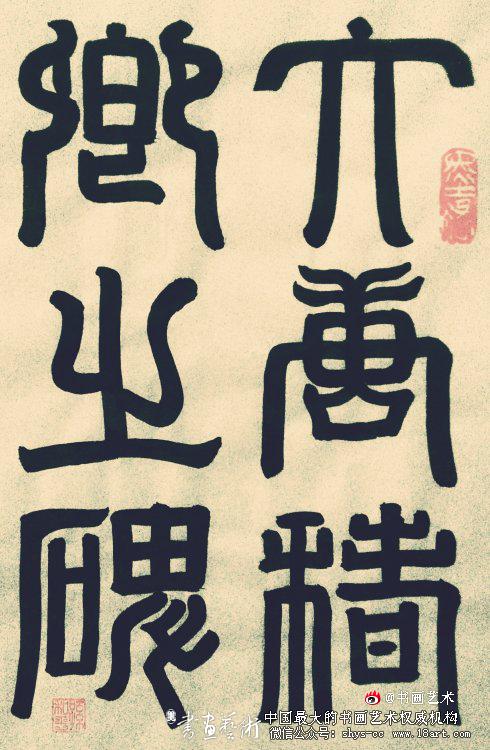 大唐
卿之碑
@书画艺术
書画藝術
中国最大的书画艺术权威机构
微信公众号: shys-cc www.18art.com